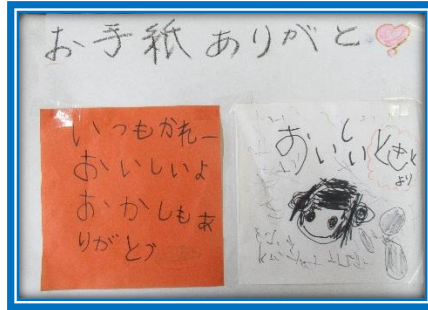 お手紙ありがと
いつもかれー
おいしいよ
おかしもあ
りがとう
おいしい
より